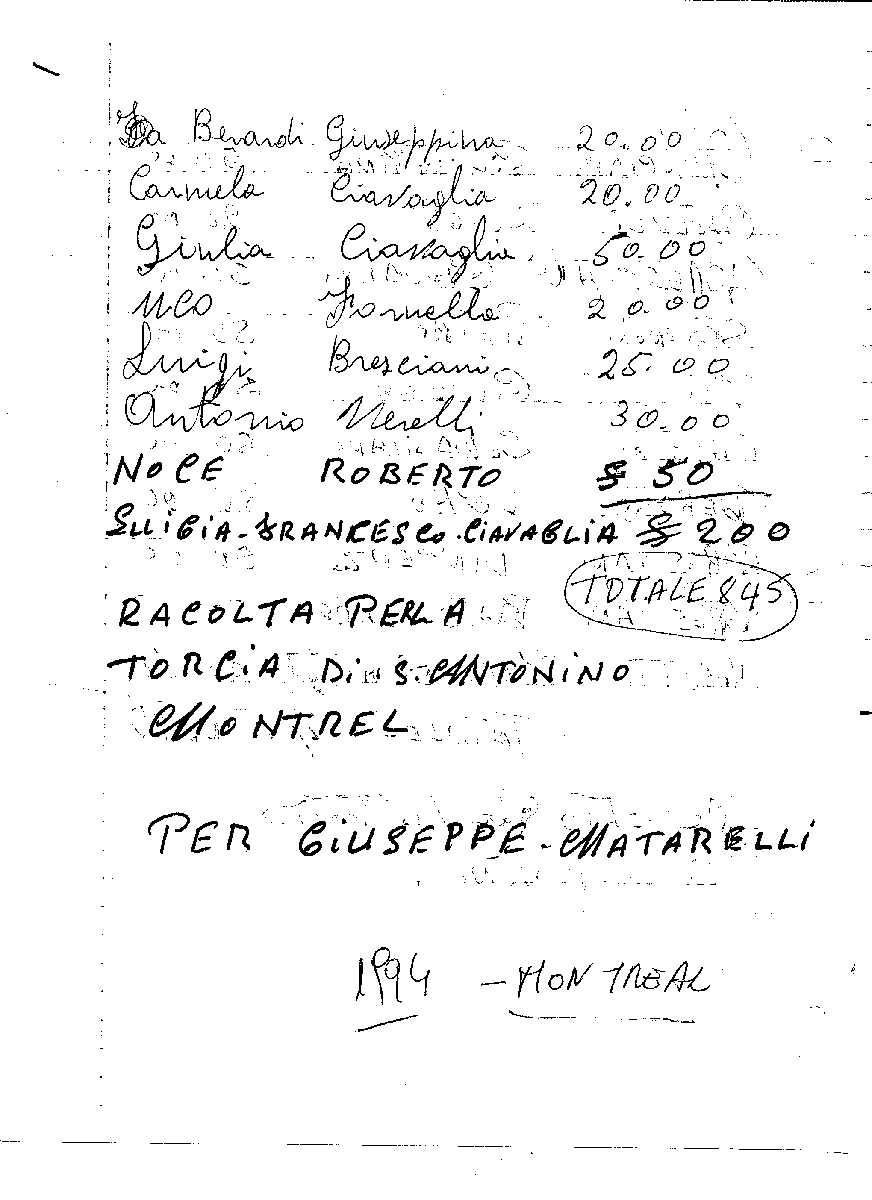 Berardi Giuseppina 20.00
Carmela Ciavaglia 20.00
Giulia Ciavaglia 50.00
UCO Fornella 20.00
Luigi Bresciani 25.00
Antonio Merelli 30.00
NOCE ROBERTO $ 50
FRANCESCO. CIAVAGLIA $ 200
TOTALE 845
RACOLTA PERLA
TORCIA Di S. ANTONINO
MONTREL
PER GIUSEPPE - MATARELLI
1994 - MONTREAL